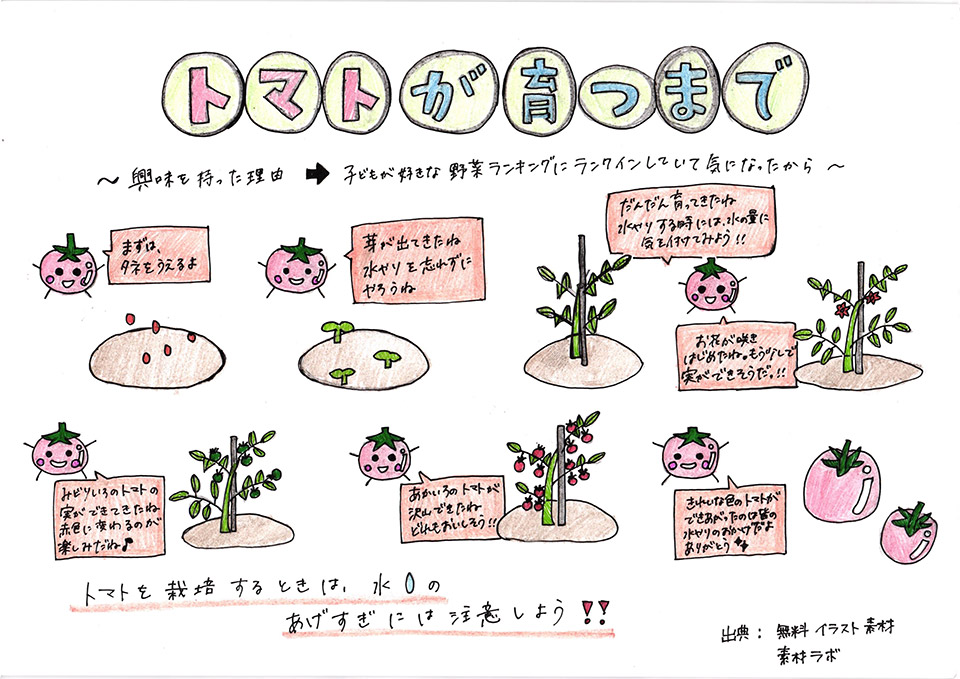 トマトが育つまで
～ 興味を持った理由 ➡ 子どもが好きな野菜ランキングにランクインしていて気になったから ～
まずは、
タネをうえるよ
芽が出てきたね
水やりを忘れずに
やろうね
だんだん育ってきたね
水やりする時には、水の量に
気を付けてみよう!!
お花が咲き
はじめたね。もう少しで
実ができそうだ。!!
みどりいろのトマトの
実ができてきたね
赤色に変わるのが
楽しみだね♪
あかいろのトマトが
沢山できたね
どれもおいしそう!!
きれいな色のトマトが
できあがったのは皆の
水やりのおかげだよ
ありがとう
トマトを栽培するときは、水の
あげすぎには注意しよう!!
出典： 無料イラスト素材
素材ラボ